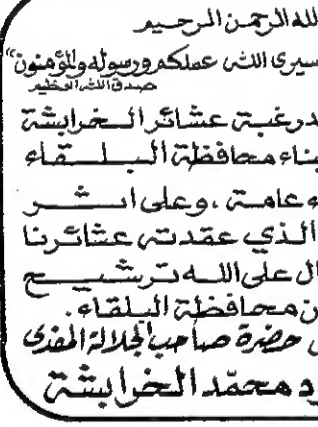 لله الرحمن الرحيم
سيرى الله عملكم ورسوله والمؤمنون"
صدق الله العظيم
در غبة عشائر الخرابشة
بناء محافظة البلقاء
ء عامة ، وعلى اثر
الذي عقدته عشائرنا
ال على الله ترشيح
ن محافظة البلقاء.
حضرة صاحب الجلالة المفدى
د محمد الخرابشة